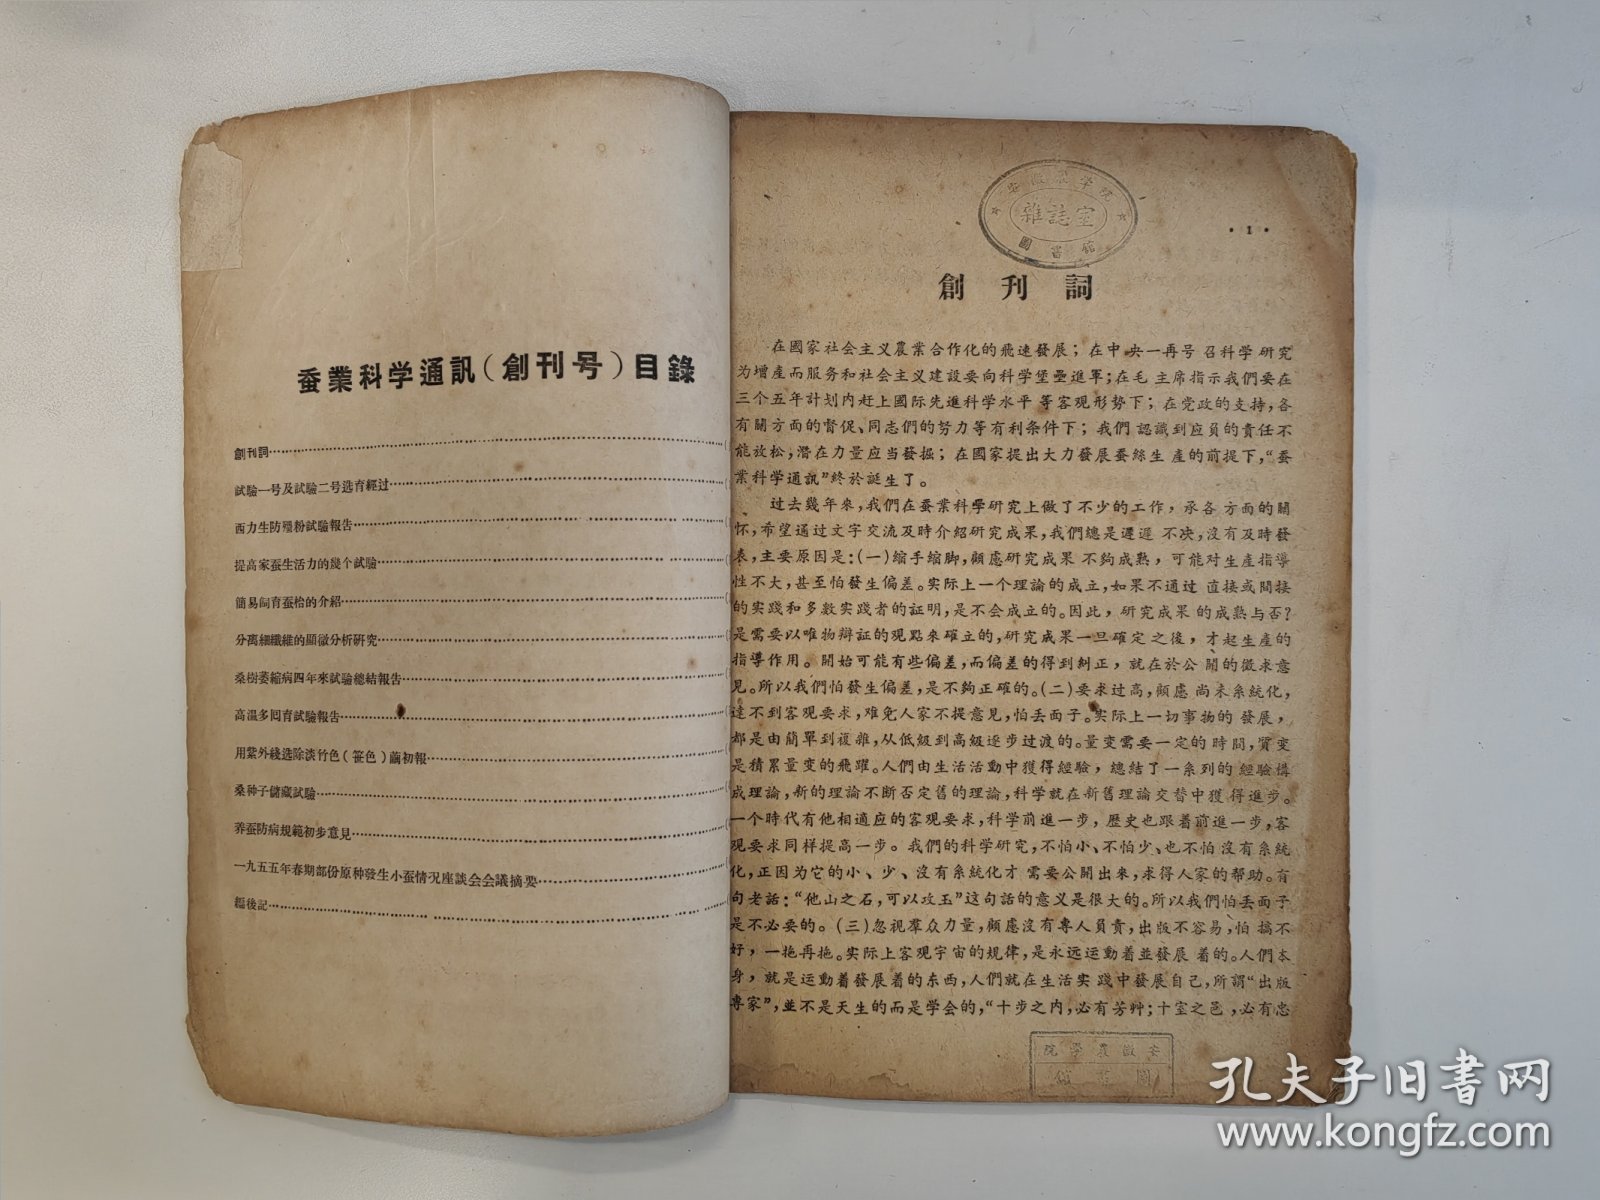 蚕業科学通訊（創刊号）目錄
創刊詞
試驗一号及試驗二号选育經过
西力生防殭粉試驗報告
提高家蚕生活力的幾个試驗
簡易飼育蚕枱的介紹
分离細纖維的顯微分析研究
桑樹萎縮病四年來試驗總結報告
高温多囘育試驗報告
用紫外綫选除淡竹色（笹色）繭初報
桑种子儲藏試驗
养蚕防病規範初步意見
一九五五年春期部份原种發生小蚕情况座談会会議摘要
編後記
安徽農学院
雜誌室
圖書館
• 1 •
創刊詞
在國家社会主义農業合作化的飛速發展；在中央一再号召科学研究
为增產而服务和社会主义建設要向科学堡壘進軍；在毛主席指示我們要在
三个五年計划内赶上國际先進科学水平等客观形勢下；在党政的支持，各
有關方面的督促、同志們的努力等有利条件下；我們認識到应負的責任不
能放松，潛在力量应当發掘；在國家提出大力發展蚕絲生產的前提下，“蚕
業科学通訊”終於誕生了。
过去幾年來，我們在蚕業科学研究上做了不少的工作，承各方面的關
怀，希望通过文字交流及時介紹研究成果，我們總是遲遲不决，沒有及時發
表，主要原因是：（一）縮手縮脚，顧慮研究成果不夠成熟，可能对生產指導
性不大，甚至怕發生偏差。实际上一个理論的成立，如果不通过直接或間接
的实踐和多数实踐者的証明，是不会成立的。因此，研究成果的成熟与否？
是需要以唯物辯証的观點來確立的，研究成果一旦確定之後，才起生產的
指導作用。開始可能有些偏差，而偏差的得到糾正，就在於公開的徵求意
見。所以我們怕發生偏差，是不夠正確的。（二）要求过高，顧慮尚未系統化，
達不到客观要求，难免人家不提意見，怕丢面子。实际上一切事物的發展，
都是由簡單到複雜，从低級到高級逐步过渡的。量变需要一定的時間，質变
是積累量变的飛躍。人們由生活活動中獲得經驗，總結了一系列的經驗構
成理論，新的理論不断否定舊的理論，科学就在新舊理論交替中獲得進步。
一个時代有他相適应的客观要求，科学前進一步，歷史也跟着前進一步，客
观要求同样提高一步。我們的科学研究，不怕小、不怕少、也不怕沒有系統
化，正因为它的小、少、沒有系統化才需要公開出來，求得人家的帮助。有
句老話：“他山之石，可以攻玉”这句話的意义是很大的。所以我們怕丢面子
是不必要的。（三）忽視羣众力量，顧慮沒有專人負責，出版不容易，怕搞不
好，一拖再拖。实际上客观宇宙的規律，是永远运動着並發展着的。人們本
身，就是运動着發展着的东西，人們就在生活实踐中發展自己，所謂“出版
專家”，並不是天生的而是学会的，“十步之内，必有芳艸；十室之邑，必有忠
安徽農學院
圖書館
孔夫子旧書网
www.kongfz.com